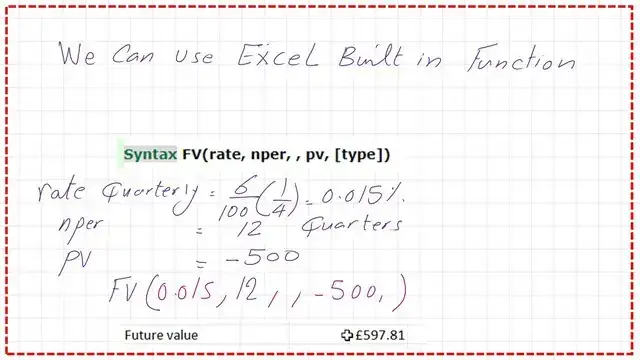 We Can use Excel Built in Function
Syntax FV(rate, nper, , pv, [type])
rate Quarterly = 6/100 (1/4) = 0.015%.
nper = 12 Quarters
PV = -500
FV(0.015, 12, , -500, )
Future value £597.81